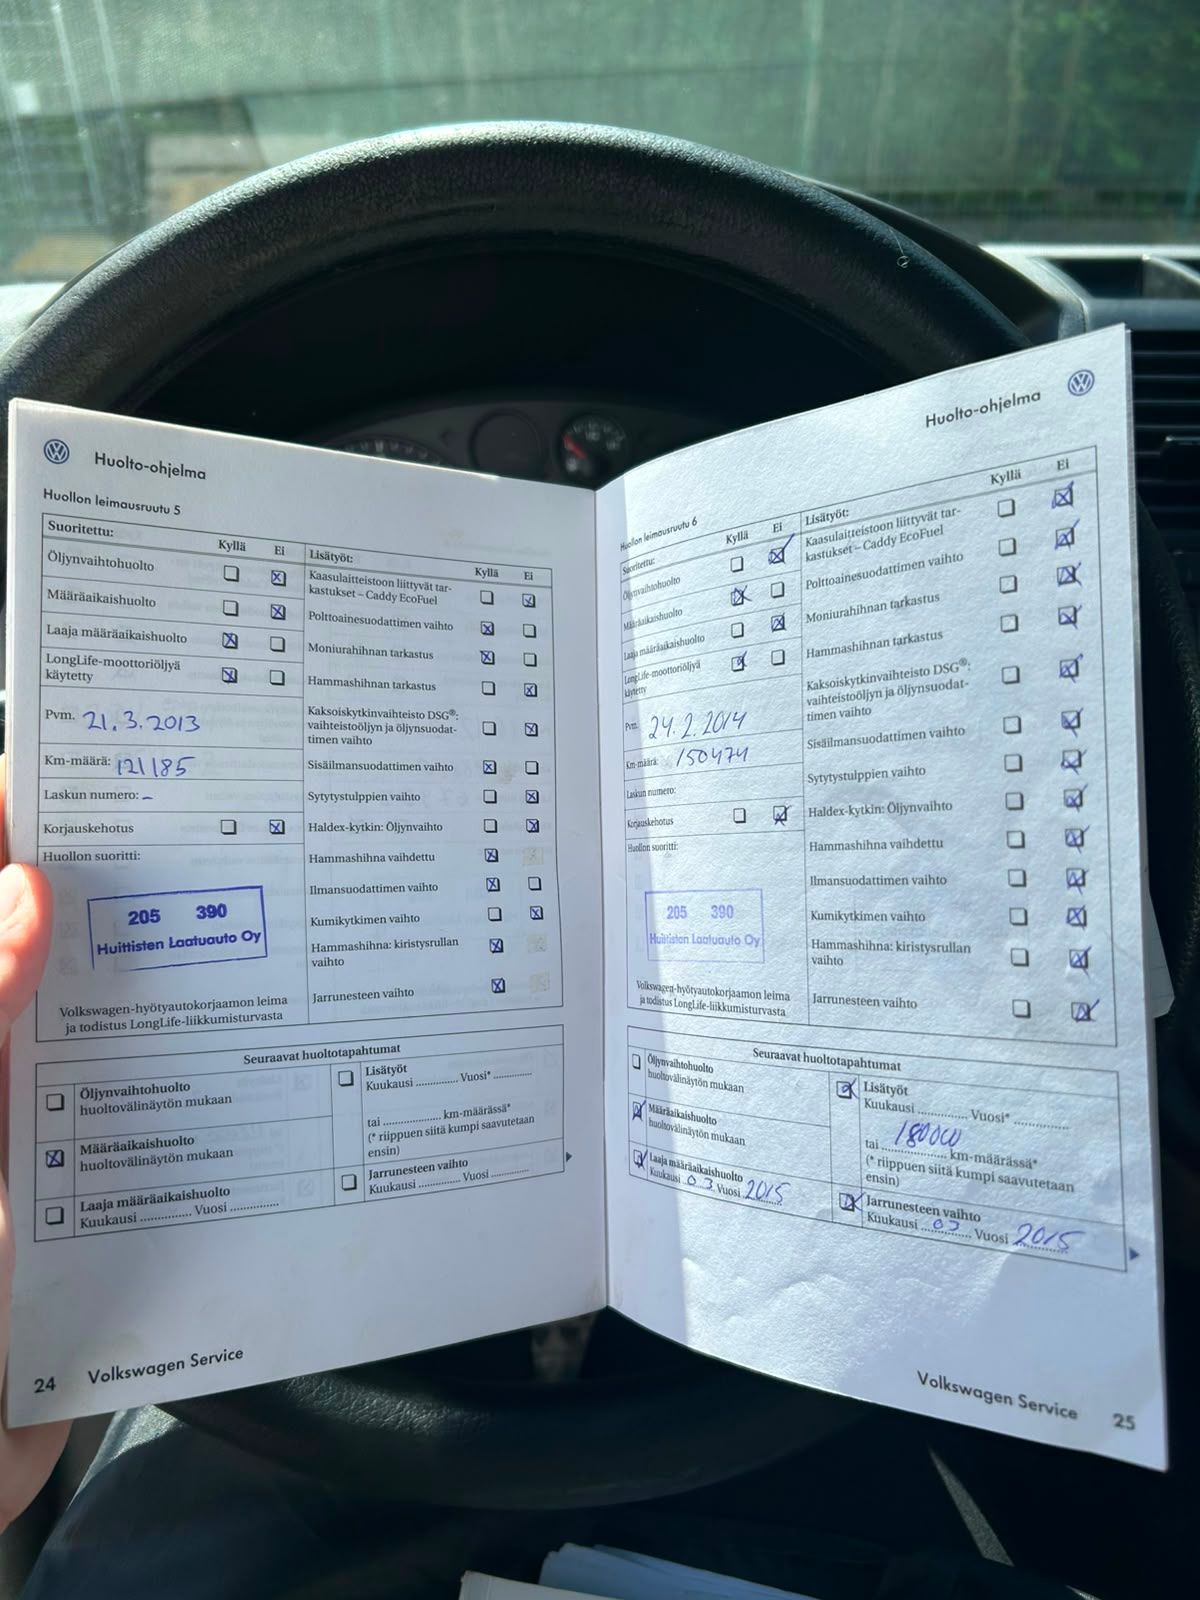 Huolto-ohjelma
Huollon leimausruutu 5
Suoritettu:
Kyllä Ei
Öljynvaihtohuolto
Määräaikaishuolto
Laaja määräaikaishuolto
LongLife-moottoriöljyä
käytetty
Pvm. 21.3.2013
Km-määrä: 121185
Laskun numero: –
Korjauskehotus
Huollon suoritti:
205 390
Huittisten Laatuauto Oy
Volkswagen-hyötyautokorjaamon leima
ja todistus LongLife-liikkumisturvasta
Lisätyöt:
Kyllä Ei
Kaasulaitteistoon liittyvät tar-
kastukset – Caddy EcoFuel
Polttoainesuodattimen vaihto
Moniurahihnan tarkastus
Hammashihnan tarkastus
Kaksoiskytkinvaihteisto DSG®:
vaihteistoöljyn ja öljynsuodat-
timen vaihto
Sisäilmansuodattimen vaihto
Sytytystulppien vaihto
Haldex-kytkin: Öljynvaihto
Hammashihna vaihdettu
Ilmansuodattimen vaihto
Kumikytkimen vaihto
Hammashihna: kiristysrullan
vaihto
Jarrunesteen vaihto
Seuraavat huoltotapahtumat
Öljynvaihtohuolto
huoltovälinäytön mukaan
Määräaikaishuolto
huoltovälinäytön mukaan
Laaja määräaikaishuolto
Kuukausi .............. Vuosi ..............
Lisätyöt
Kuukausi ............ Vuosi* ............
tai .................. km-määrässä*
(* riippuen siitä kumpi saavutetaan
ensin)
Jarrunesteen vaihto
Kuukausi ............ Vuosi ............
24 Volkswagen Service
Huolto-ohjelma
Huollon leimausruutu 6
Suoritettu:
Kyllä Ei
Öljynvaihtohuolto
Määräaikaishuolto
Laaja määräaikaishuolto
LongLife-moottoriöljyä
käytetty
Pvm. 24.2.2014
Km-määrä: 150474
Laskun numero:
Korjauskehotus
Huollon suoritti:
205 390
Huittisten Laatuauto Oy
Volkswagen-hyötyautokorjaamon leima
ja todistus LongLife-liikkumisturvasta
Lisätyöt:
Kyllä Ei
Kaasulaitteistoon liittyvät tar-
kastukset – Caddy EcoFuel
Polttoainesuodattimen vaihto
Moniurahihnan tarkastus
Hammashihnan tarkastus
Kaksoiskytkinvaihteisto DSG®:
vaihteistoöljyn ja öljynsuodat-
timen vaihto
Sisäilmansuodattimen vaihto
Sytytystulppien vaihto
Haldex-kytkin: Öljynvaihto
Hammashihna vaihdettu
Ilmansuodattimen vaihto
Kumikytkimen vaihto
Hammashihna: kiristysrullan
vaihto
Jarrunesteen vaihto
Seuraavat huoltotapahtumat
Öljynvaihtohuolto
huoltovälinäytön mukaan
Määräaikaishuolto
huoltovälinäytön mukaan
Laaja määräaikaishuolto
Kuukausi 03 Vuosi 2015
Lisätyöt
Kuukausi ............ Vuosi* ............
tai 180000 km-määrässä*
(* riippuen siitä kumpi saavutetaan
ensin)
Jarrunesteen vaihto
Kuukausi 03 Vuosi 2015
Volkswagen Service 25